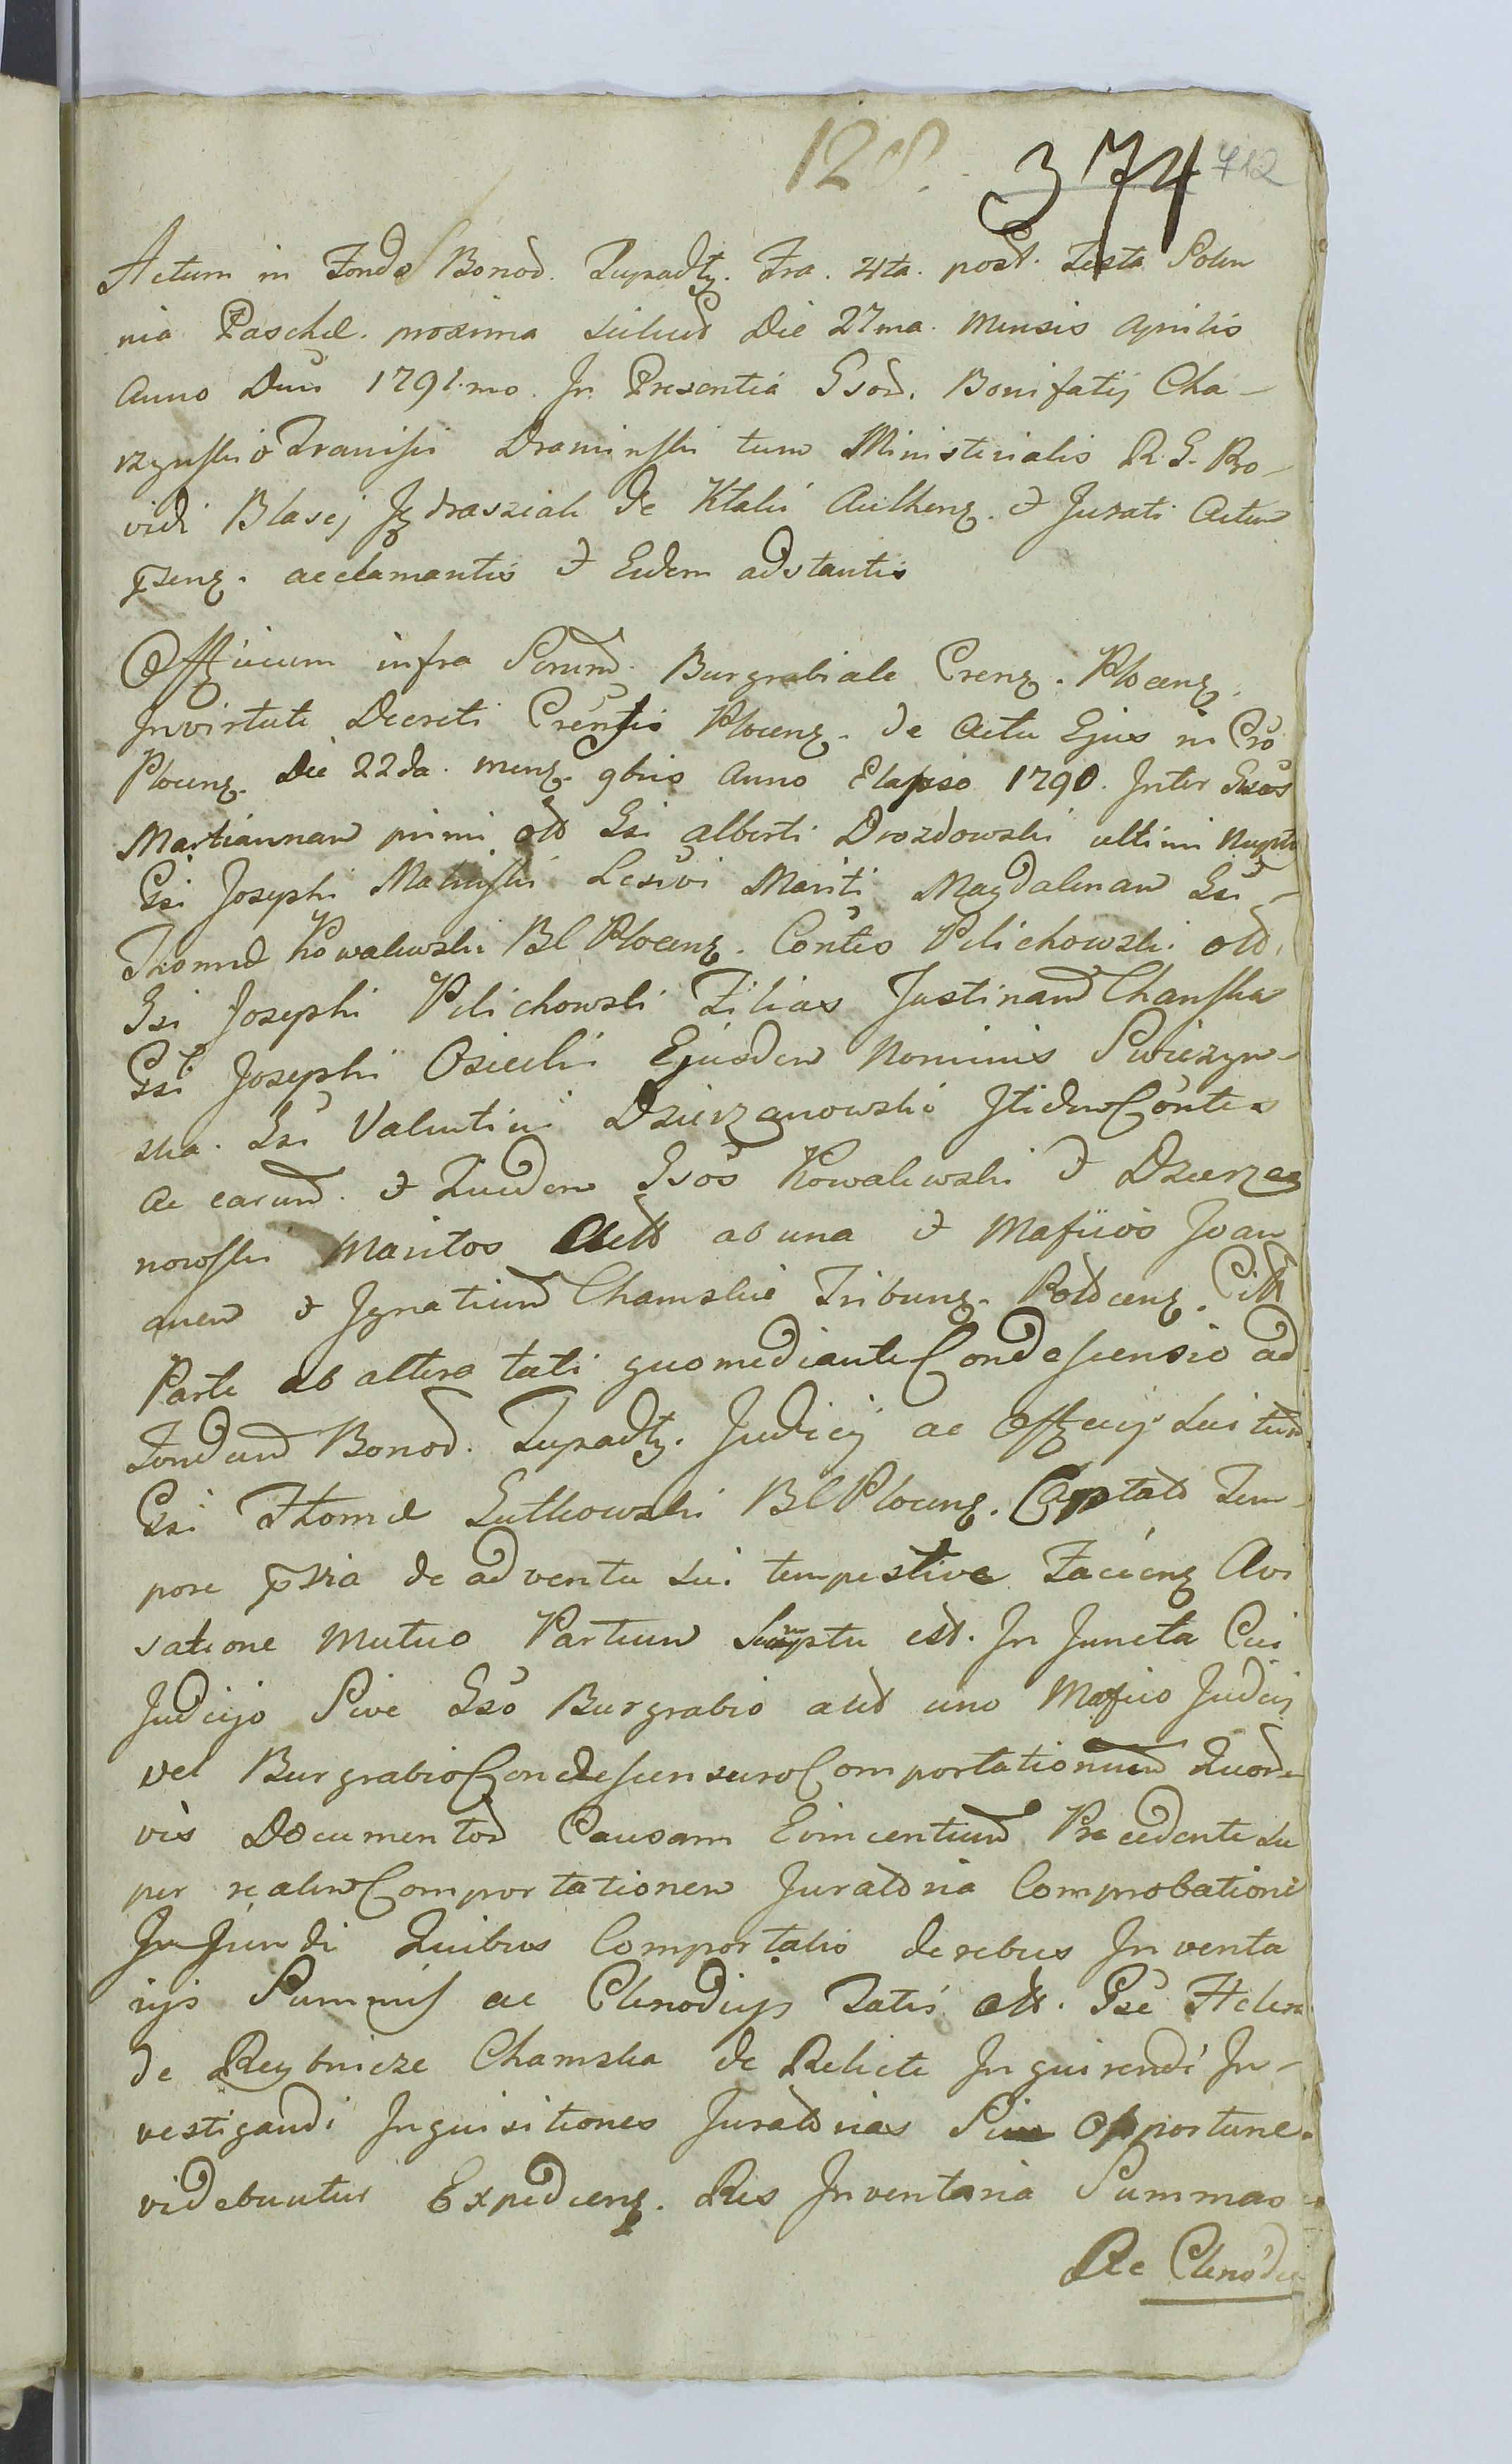 128. 374 712
Actum in Fondo Bonoɖ. Lupadtz. Fra. 4ta. post. Festa Solen
nia Paschal. proxima scilicet Die 27ma. Mensis Aprilis
Anno Dni 1791.mo. In Presentia Gsoɖ. Bonifatij Cha-
rzynski & Francisci Draminski tum Ministerialis R. G. Pro-
vidi Blasej Jędrasziak de Ktali Authenz. & Jurati Actum
psenz. acclamantis & Eidem adstantis
Officium infra Scrium. Burgrabiale Crenz. Plocenz.
Invirtute Decreti Crensis Plocenz. de Actu Ejus in Cro
Plocenz. Die 22da. menz. 9bris Anno Elapso 1790. Inter Gsas
Martiannam primi olt Gsi Alberti Drozdowski ultimi Nupti
Gsi Josephi Malinski Lesivi Mariti Magdalenam Gsi
Thomæ Kowalewski Bl Plocenz. Contis Pilichowski olt.
Gsi Josephi Pilichowski Filias Justinam Chamska
Gsi Josephi Osiecki Ejusdem Nominis Swiezyn-
ska. Gsi Valentini Dzierzanowski Itidem Contes
ac earund. & Eiudem Gsos Kowalewski & Dzierza
nowski Maritos Actt ab una & Mafiios Joan
anem & Ignatium Chamskie Tribunz. Plocenz. Citt
Parte ab altera lati quo mediante Condescensio ad
Fondum Bonoɖ. Lupadtz. Judicij ac Officij sui tum
Gsi Thomæ Lutkowski Bl Plocenz. Captato Tem-
pore psvia de adventu sui tempestive Facienz Avi
satione Mutuo Partium Sumptu est. In Juncta Cui
Judicijo Sive Gso Burgrabio aut uno Mafico Judicij
vel Burgrabio Condescensuro Comportationem Quor
vis Documentoɖ Causam Evincentium Præcedente su
per realem Comportationem Juratoria Comprobatione
In Jundi Quibus Comportatio de rebus Inventa
rijs Summis ac Clenodijs Fatis olt. Gsæ Helena
de Reybnicze Chamska de Relicte Inquirendi In-
vestigandi Inquisitiones Juratorias Sive Opportune
videbuntur Expedienz. Res Inventaria Summas
Ac Clenodia